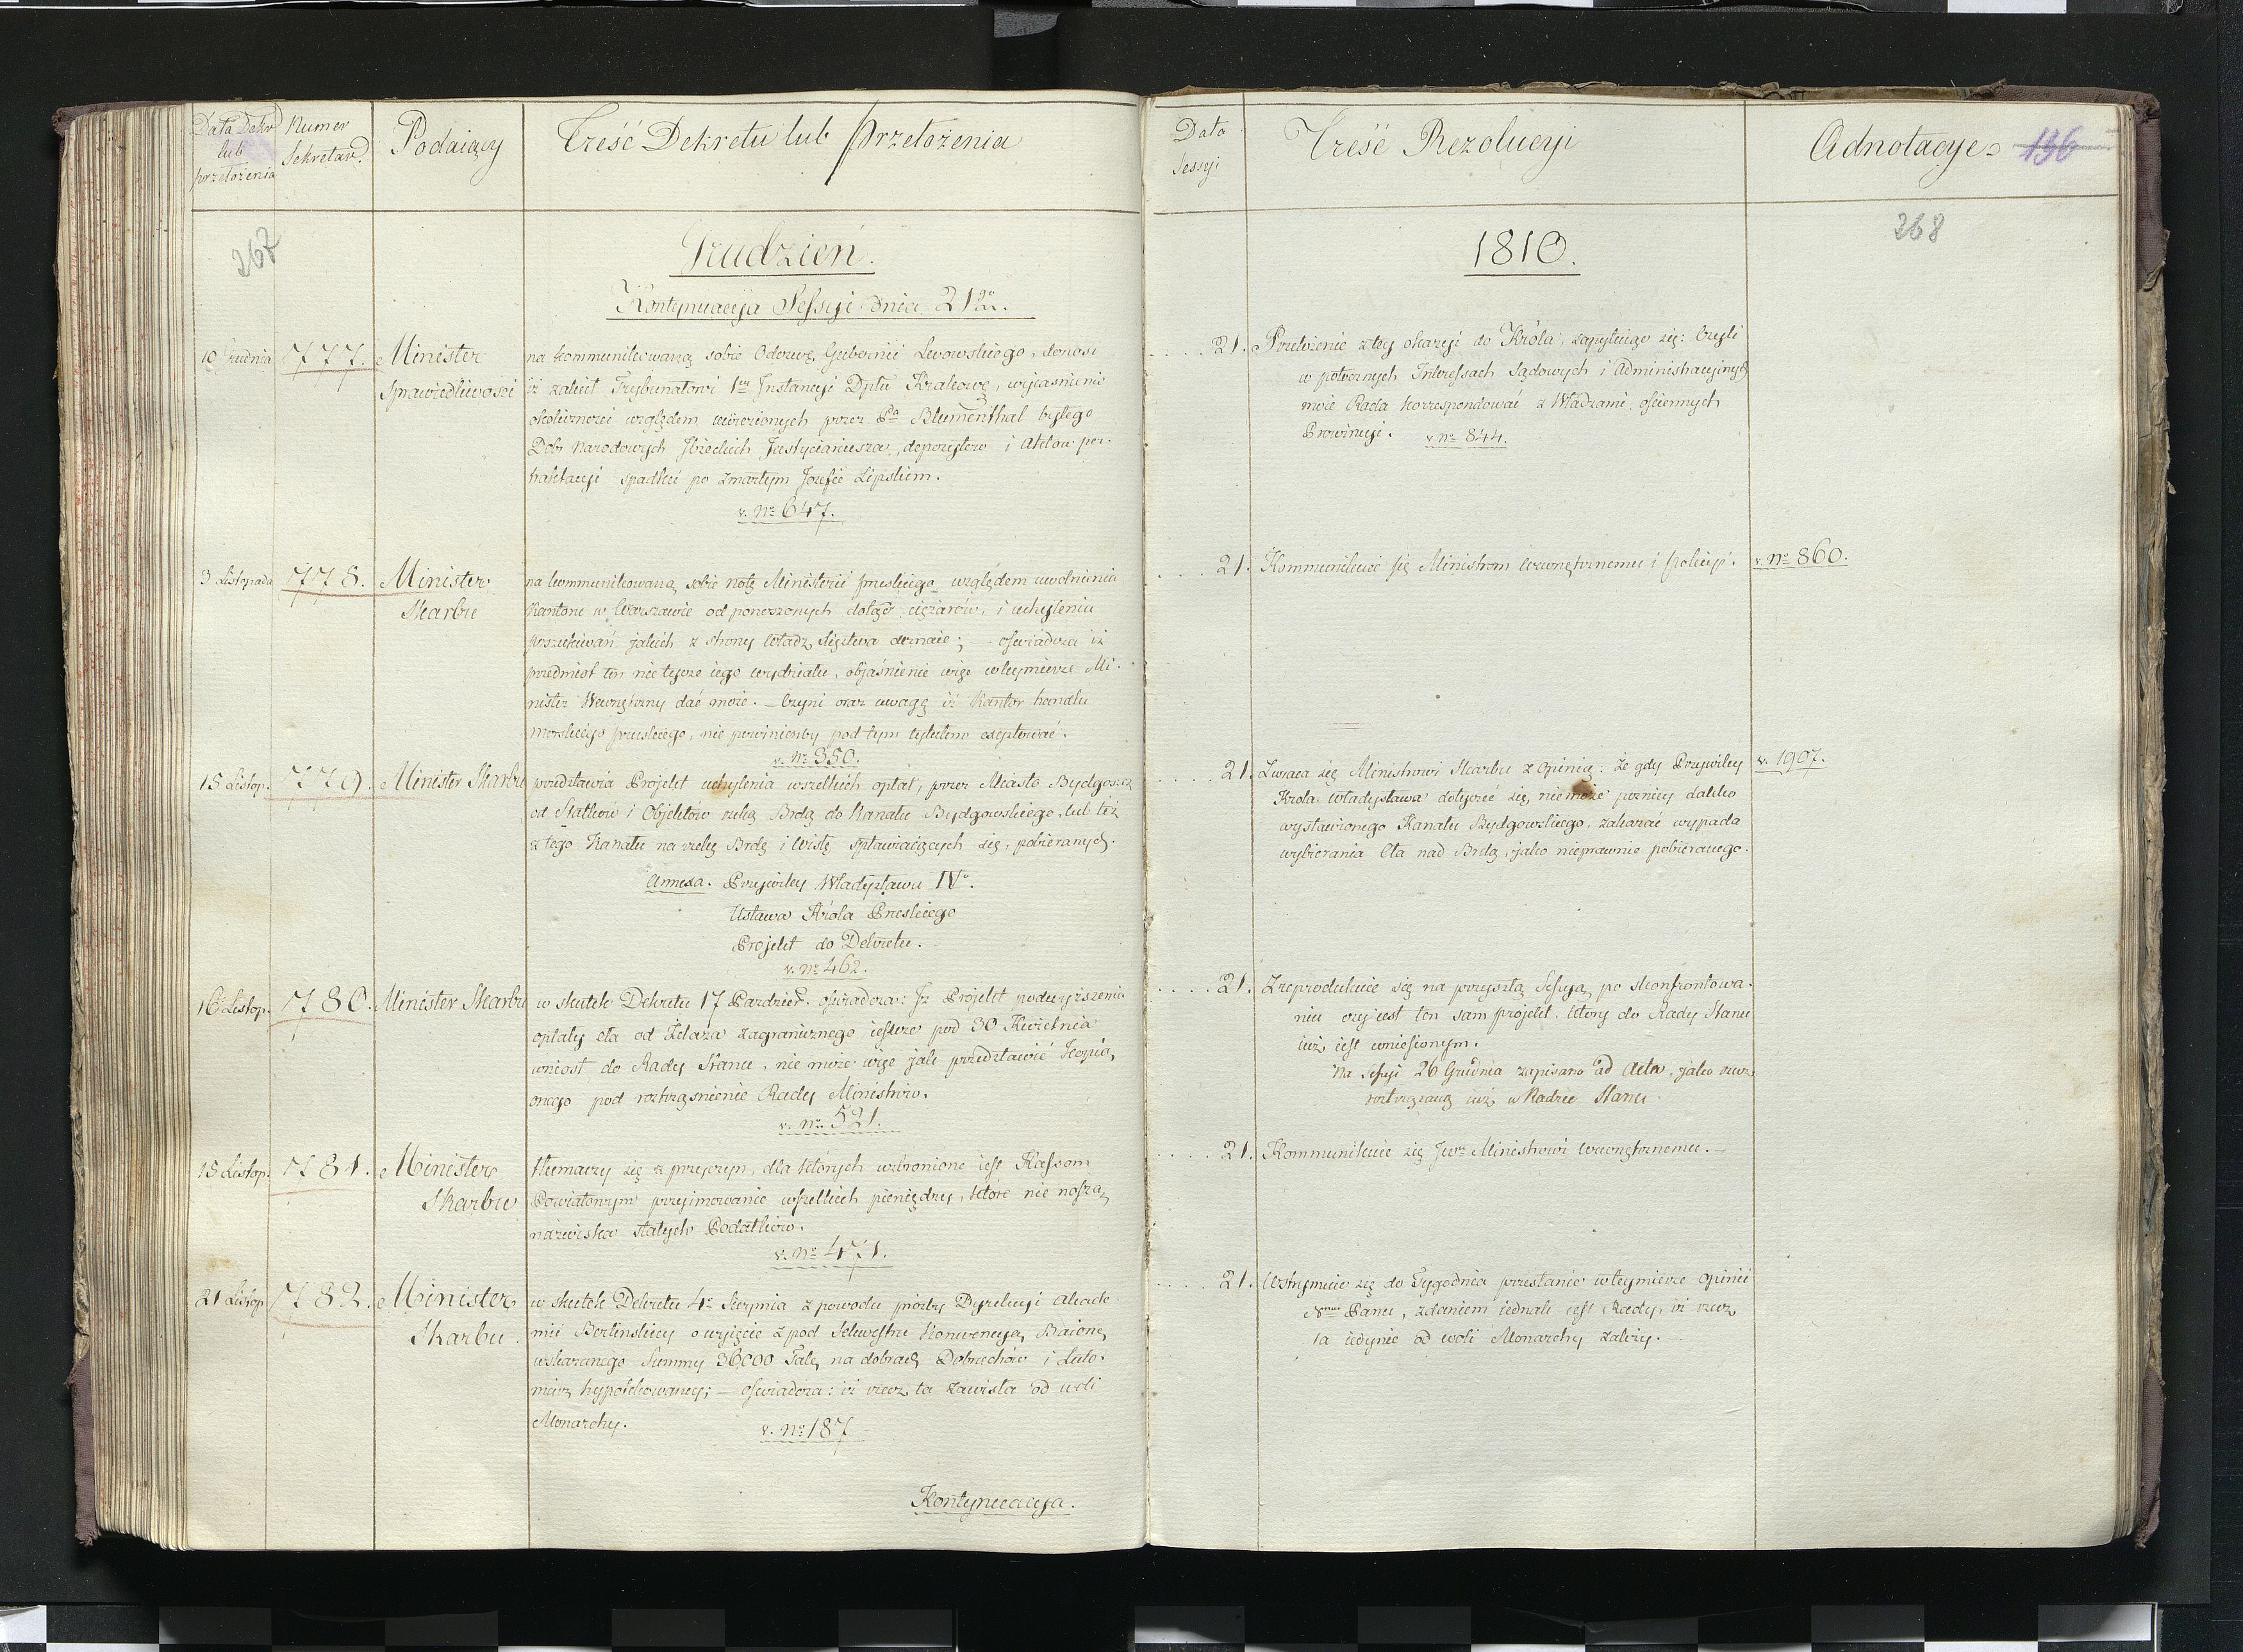 Data Dekr.
lub
przełożenia
Numer
Sekretar.
Podaiący
Treść Dekretu lub Przełożenia
267
Grudzień.
Kontynuacyja Sessyi dnia 21go.
10 Grudnia
777.
Minister
Sprawiedliwości
na kommunikowaną sobie Odezwę Gubernii Lwowskiego, donosi
iż zalecił Trybunałowi 1ey Instancyi Dptu Krakow, wyiaśnienie
okoliczności względem uwiezionych przez Pa Blumenthal byłego
Dobr Narodowych Justycianiusza, depozytów i Aktów per-
traktacyi spadku po zmarłym Jozefie Lipskim.
v. No 647.
3 Listopada
778.
Minister
Skarbu
na kommunikowaną sobie notę Ministerii pruskiego względem uwolnienia
Kantoru w Warszawie od ponoszonych dotąd ciężarów, i uchylenia
poszukiwań jakich z strony Władz Xięztwa doznaie; — oświadcza iż
przedmiot ten nie tycze iego wydziału, objaśnienie więc w tey mierze Mi-
nister Wewnętrzny dać może. — Czyni oraz uwagę iż Kantor handlu
morskiego pruskiego, nie powinienby pod tym tytułem exystować.
v. No 350.
15 Listop.
779.
Minister Skarbu
przedstawia Projekt uchylenia wszelkich opłat, przez Miasto Bydgoszcz
od Statków i Objektów rzeką Brdą do Kanału Bydgowskiego, lub też
z tego Kanału na rzekę Brdę i Wisłę spławiaiących się, pobieranych.
Annexa. Przywiley Władysława IVo.
Ustawa Króla Pruskiego
Projekt do Dekretu.
v. No 462.
16 Listop.
780.
Minister Skarbu
w skutek Dekretu 17 Pazdzier. oświadcza: Iż Projekt podwyższenia
opłaty cła od Żelaza zagranicznego ieszcze pod 30 Kwietnia
wniosł do Rady Stanu, nie może więc jak przedstawić kopią
onego pod roztrząśnienie Rady Ministrów.
v. No 521.
15 Listop.
781.
Minister
Skarbu
tłumaczy się z przyczyn, dla których wzbronione iest Kassom
Powiatowym przyimowanie wszelkich pieniędzy, które nie noszą
nazwiska stałych Podatków.
v. No 471.
21 Listop.
782.
Minister
Skarbu
w skutek Dekretu 4o Sierpnia z powodu prośby Dyrekcyi Akade-
mii Berlinskiey o wyięcie z pod Sekwestru Konwencyą Baioną
wskazanego Summy 36,000 Tal. na dobrach Dobruchów i Luto-
mierz hypotekowaney; — oświadcza: iż rzecz ta zawisła od woli
Monarchy.
v. No 187
Kontynuacyja.
Data
Sessyi
Treść Rezolucyi
Adnotacye
136
268
1810.
21. Przełożenie z tey okazyi do Króla, zapytuiąc się: Czyli
w potocznych Interessach Sądowych i Administracyinych
może Rada korrespondować z Władzami ościennych
Prowincyi. v No 844.
21. Kommunikuie się Ministrom Wewnętrznemu i Policyi.
v. No 860.
21. Zwraca się Ministrowi Skarbu z Opinią: że gdy Przywiley
Krola Władysława dotyczeć się nie może pozniey daleko
wystawionego Kanału Bydgowskiego, zakazać wypada
wybierania Cła nad Brdą, jako nieprawnie pobieranego.
v. 1907.
21. Zreprodukuie się na przyszłą Sessyą, po skonfrontowa-
niu czy iest ten sam projekt, który do Rady Stanu
iuż iest wniesionym.
Na Sessyi 26 Grudnia zapisano ad Acta, jako rzecz
roztrząsaną iuż w Radzie Stanu.
21. Kommunikuie się Jwu Ministrowi Wewnętrznemu. —
21. Wstrzymuie się do Tygodnia przesłanie w tey mierze opinii
Nmu Panu, zdaniem iednak iest Rady, iż rzecz
ta iedynie od woli Monarchy zależy. —